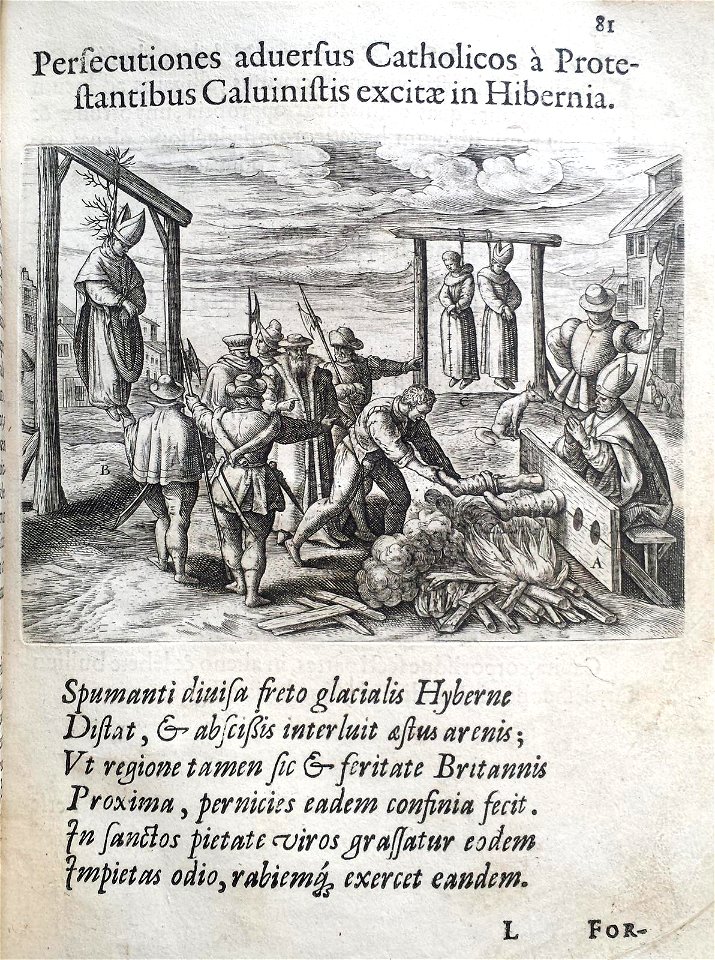 81
Perſecutiones aduerſus Catholicos à Prote-
ſtantibus Caluiniſtis excitæ in Hibernia.
B
A
Spumanti diuiſa freto glacialis Hyberne
Diſtat, & abſciſsis interluit æſtus arenis;
Vt regione tamen ſic & feritate Britannis
Proxima, pernicies eadem confinia fecit.
In ſanctos pietate viros graſſatur eodem
Impietas odio, rabiemq́ꝫ exercet eandem.
L FOR-